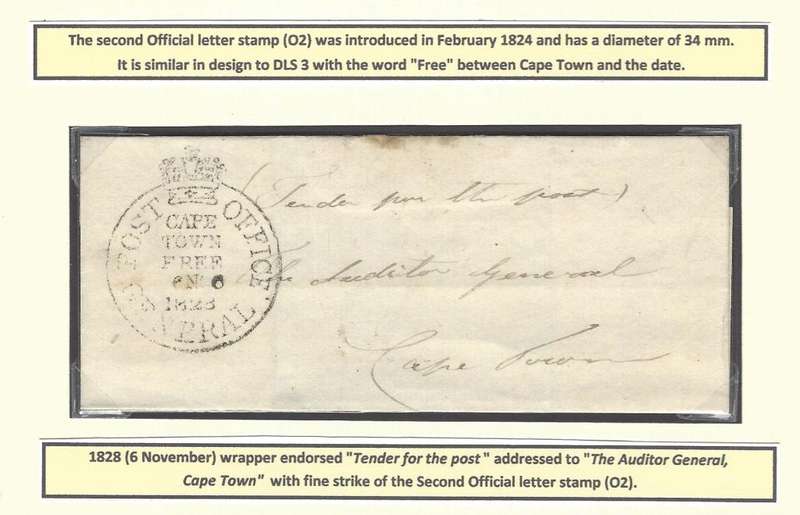 The second Official letter stamp (O2) was introduced in February 1824 and has a diameter of 34 mm.
It is similar in design to DLS 3 with the word "Free" between Cape Town and the date.
(Tender for the post)
POST OFFICE
GENERAL
CAPE
TOWN
FREE
N 6
1828
The Auditor General
Cape Town
1828 (6 November) wrapper endorsed "Tender for the post" addressed to "The Auditor General,
Cape Town" with fine strike of the Second Official letter stamp (O2).